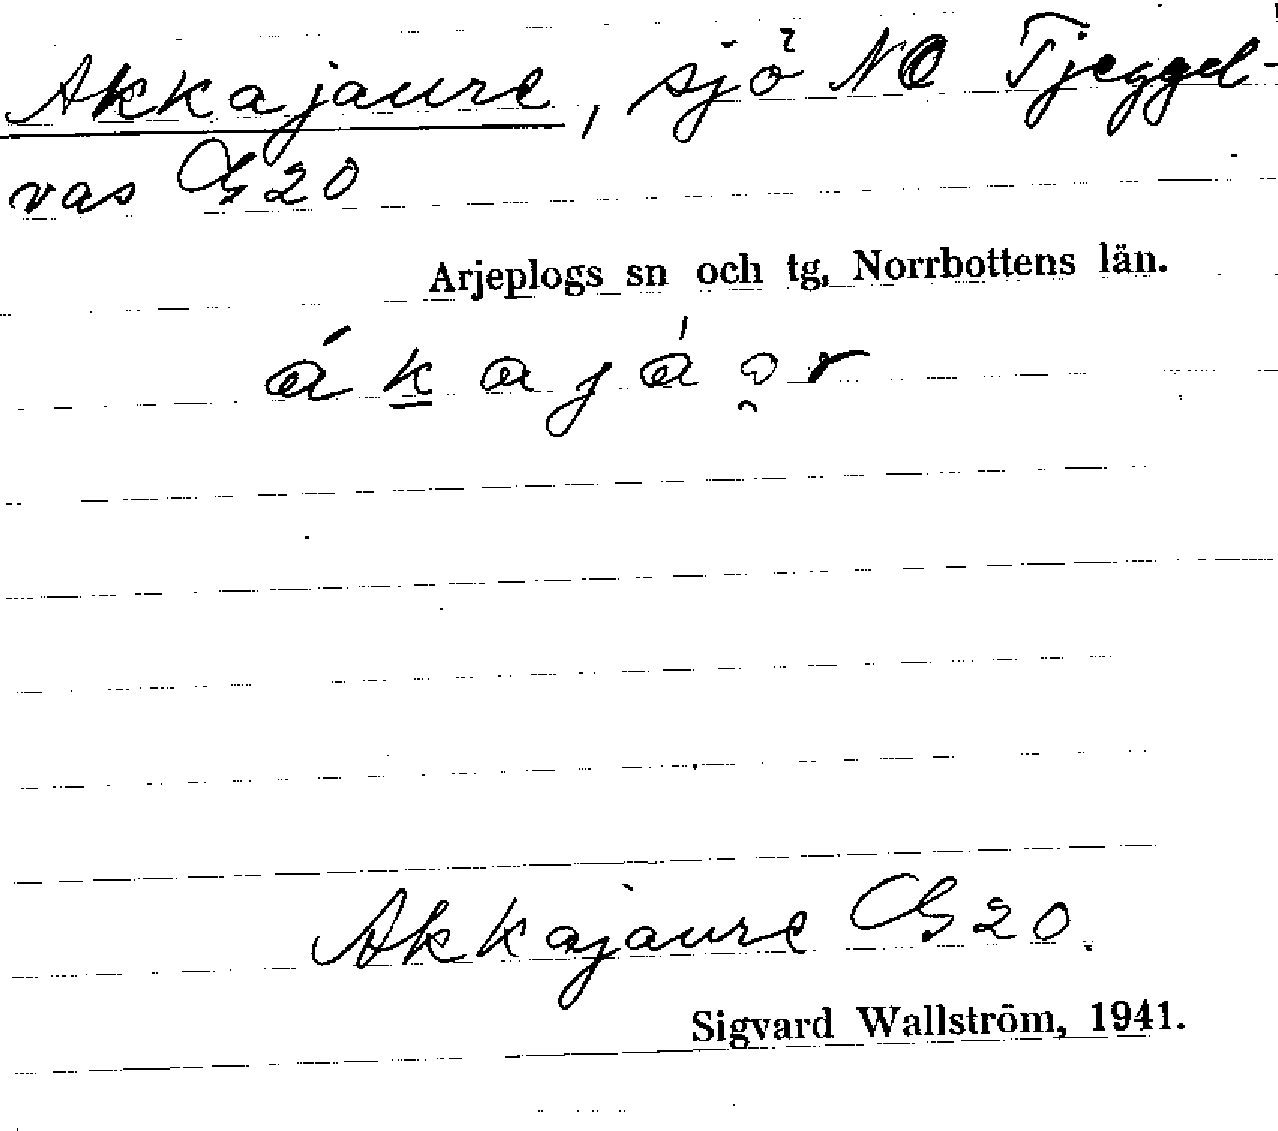 Akkajaure, sjö NO Tjeggel-
vas G20
Arjeplogs sn och tg, Norrbottens län.
Akkajaure G20.
Sigvard Wallström, 1941.